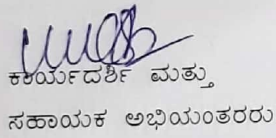 ಕಾರ್ಯದರ್ಶಿ ಮತ್ತು
ಸಹಾಯಕ ಅಭಿಯಂತರರು